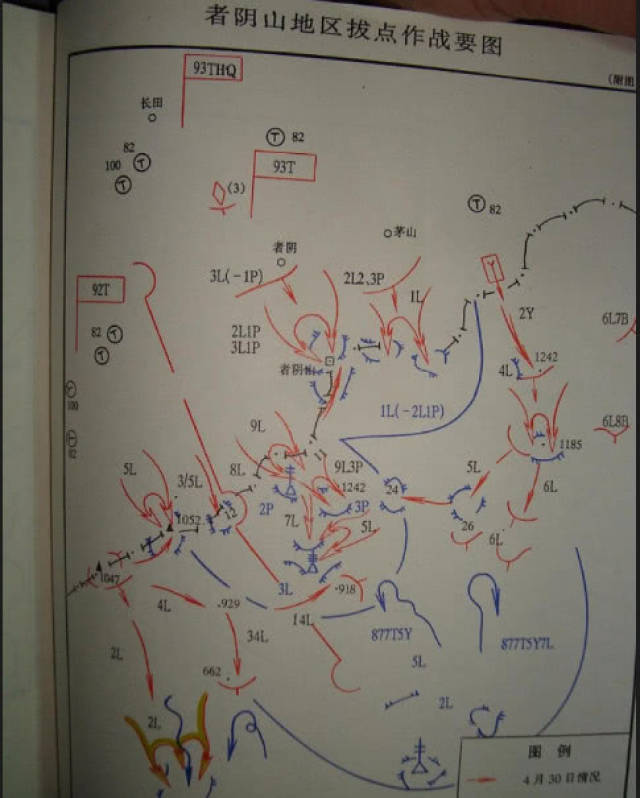 者阴山地区拔点作战要图
93THQ
长田
82
82
100
93T
(3)
82
茅山
者阴
3L(-1P)
2L2、3P
1L
92T
2Y
6L7B
2L1P
3L1P
82
1242
4L
者阴山
100
1L(-2L1P)
6L8B
82
9L
1185
5L
8L
9L3P
5L
3/5L
1242
24
6L
2P
3P
12
7L
5L
26
1052
6L
1047
3L
·918
4L
·929
14L
34L
877T5Y
877T5Y7L
2L
5L
662
2L
2L
图 例
4月30日情况